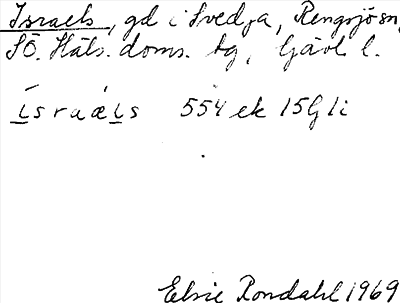 Israels, gd i Svedja, Rengsjösn,
SÖ. Häls. doms. tg, Gävl. l.
ísraæ̀ls 554 ek 15G 1i
Elsie Rondahl 1969